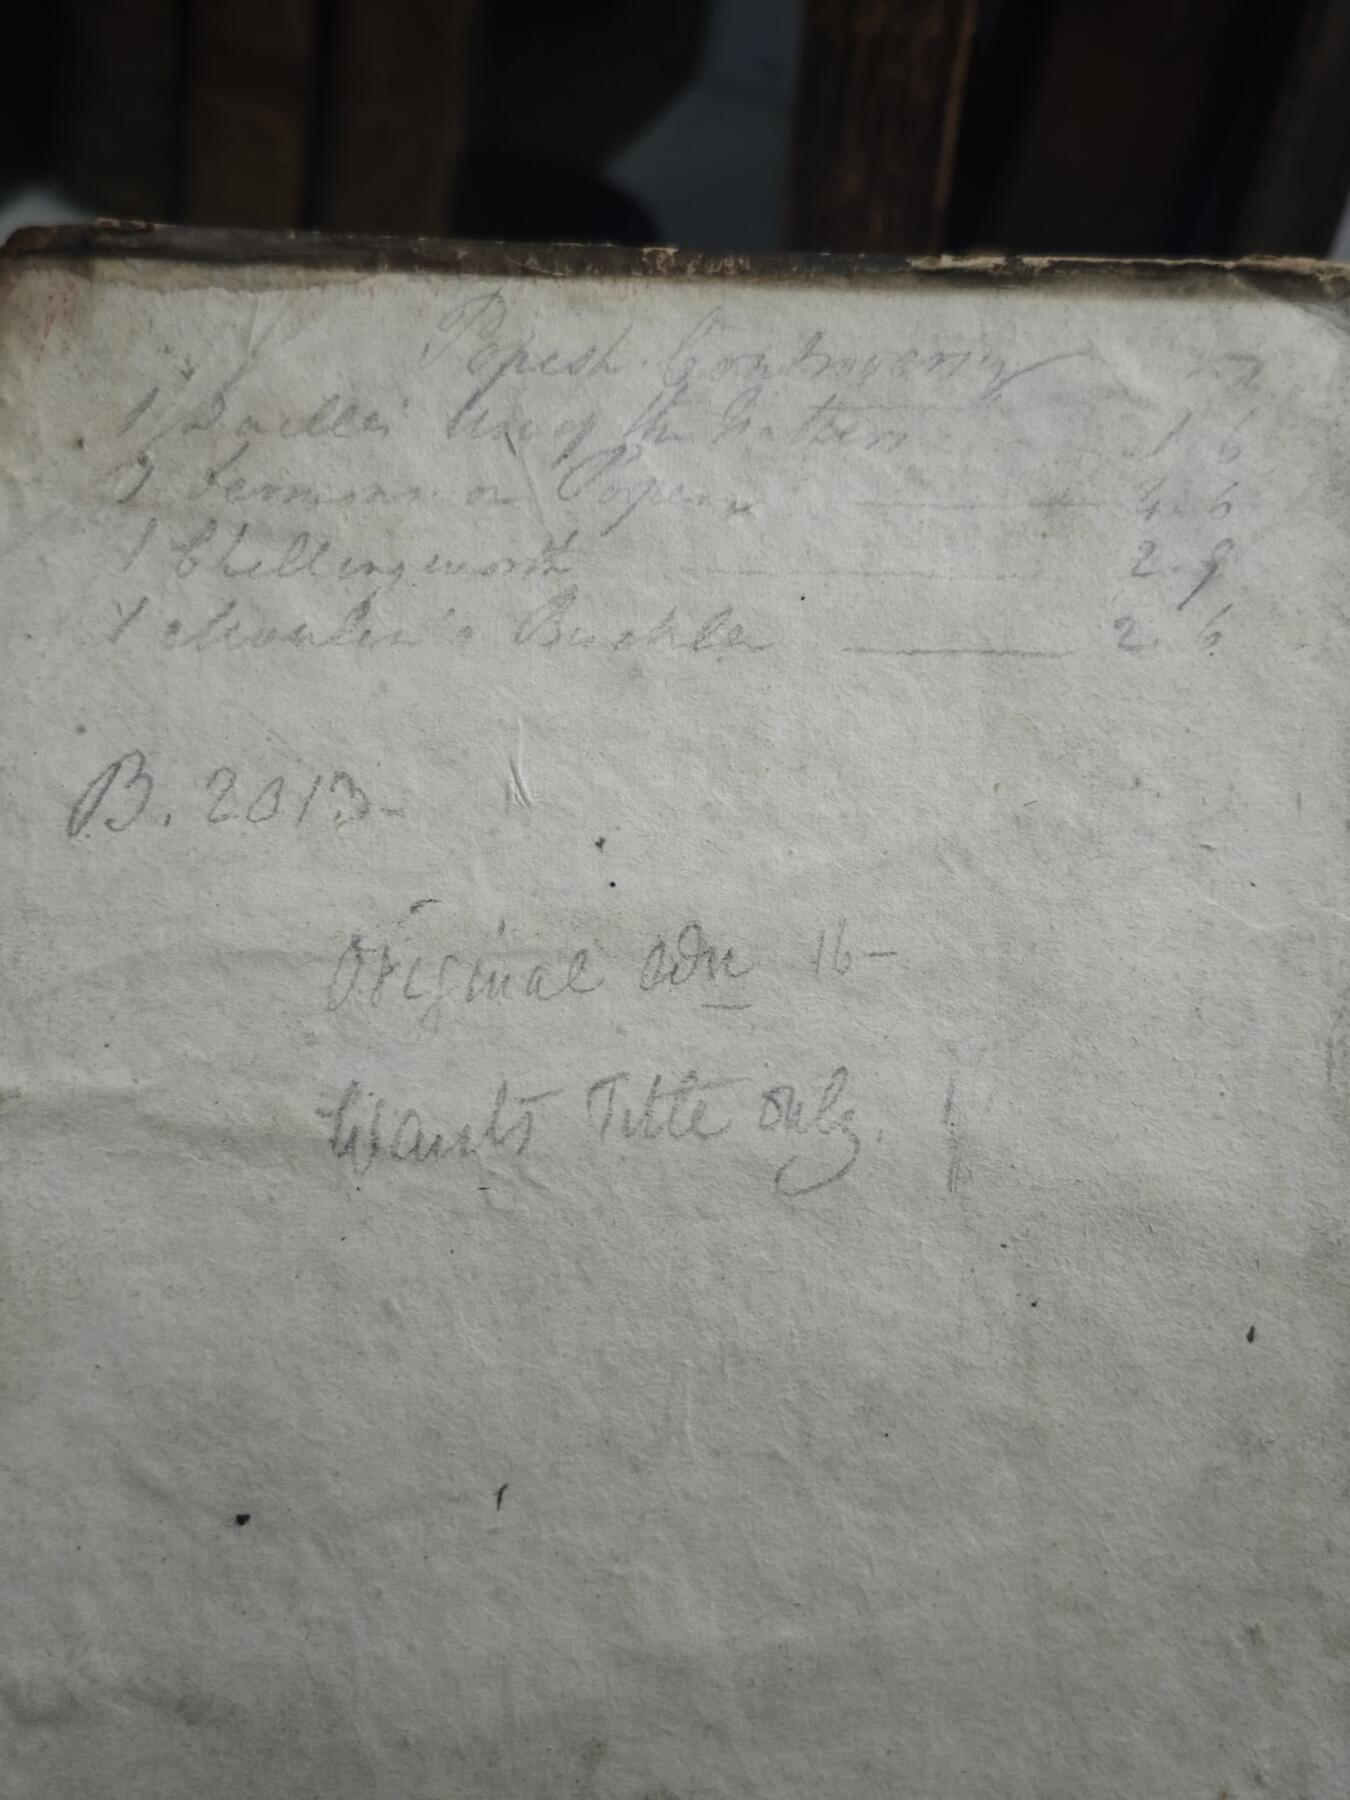 Popish Controversy
1 Daille's Use of the Fathers 1.6
1 Sermons on Popery 4.6
1 Chillingworth 2.9
1 Moulin's Buckler 2.6
B. 2013-
Original edn 16-
Wants Title only.